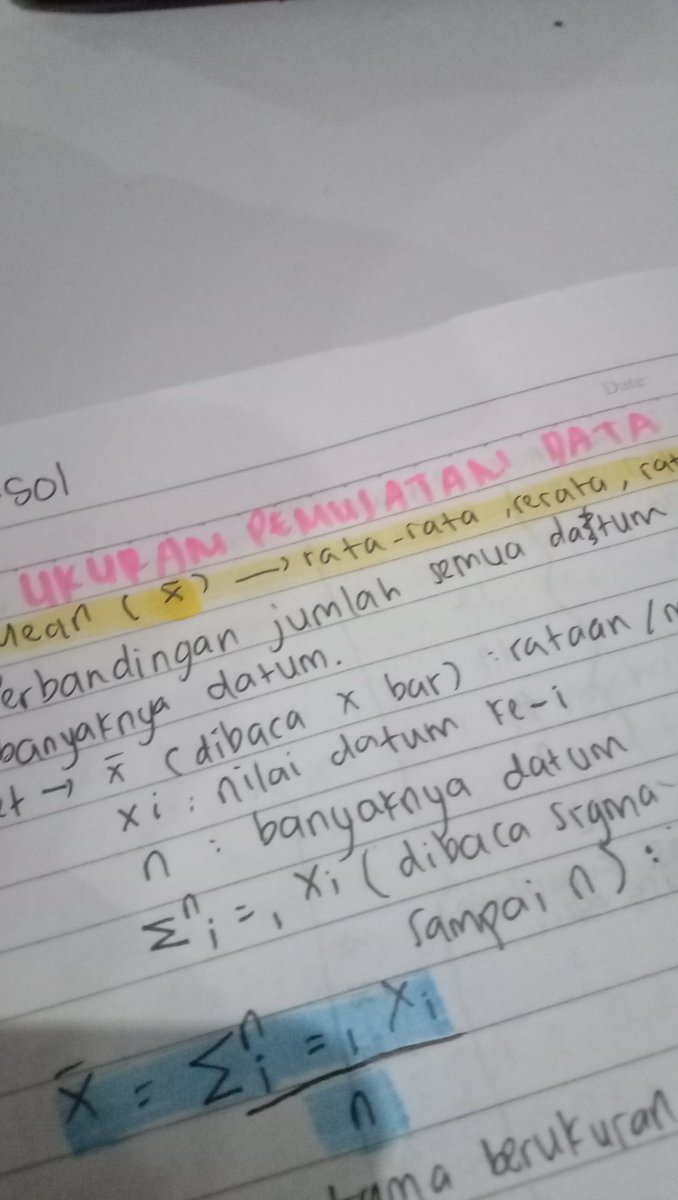 Date:
sol
UKURAN PEMUSATAN DATA
Mean (x̄) → rata-rata, rerata, rat
erbandingan jumlah semua datum
banyaknya datum.
et → x̄ (dibaca x bar) : rataan /
xi : nilai datum ke-i
n : banyaknya datum
Σⁿi=1 xi (dibaca sigma
sampai n) :
x̄ = Σⁿi=1 xi
n
ama berukuran